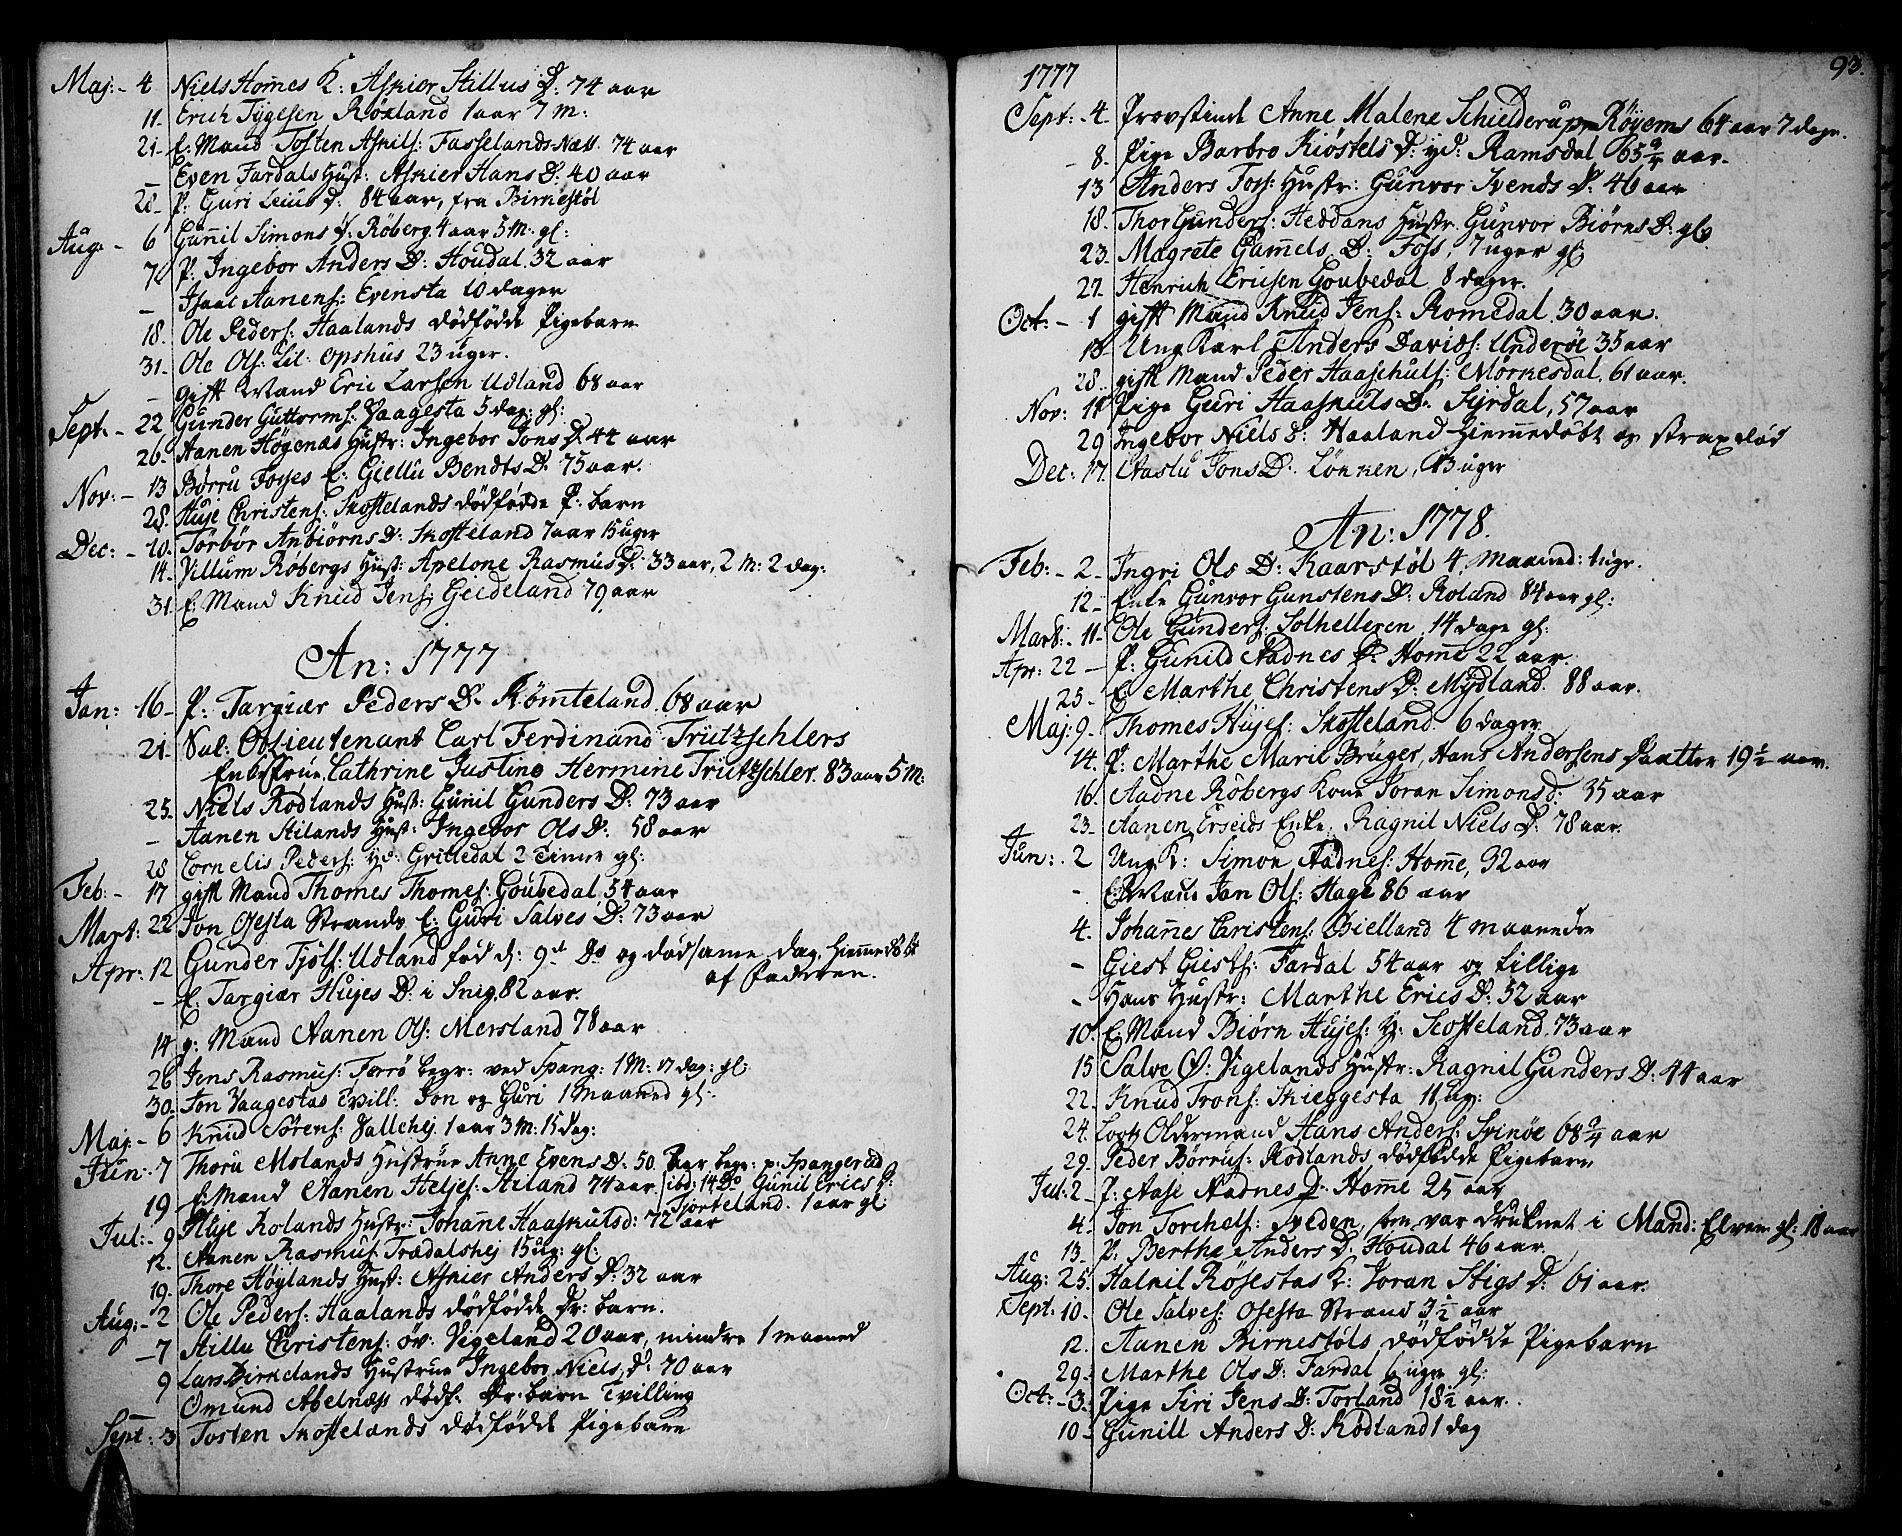 Maj: - 4 Niels Homes K: Askier Stillus D: 74 aar
11. Erich Tygesen Röiland 1 aar 7 M:
21. E: Mand Tosten Askils: Fasselands Næss. 74 aar
_ Even Fardals Hust: Askier Hans D: 40 aar
28_ P: Guri Leius D: 84 aar, fra Birnestøl
Aug: - 6 Gunnil Simons D: Røberg 4 aar 5 M. gl:
7. P. Ingebor Anders D: Houdal. 32 aar
_ Isaac Aanens: Evensta 10 dager
18. Ole Peders: Haalands dödfödde Pigebarn
31. Ole Ols: Lil: opshus 23 uger.
_ gift Mand Eric Larsen Udland 68 aar
Sept: - 22 Gunder Guttorms: Vaagesta 5 dag: gl:
26. Aanen Högenæs Hustr: Ingebor Jons D. 44 aar
Nov: - 13 Börru Fosses E: Giellu Bendts D: 75 aar.
28. Huje Christens: Skoftelands dödfödde P: barn
Dec: - 10. Torbör Anbiörns D: Skofteland 7 aar 15 uger
14. Villum Röbergs Hust: Apelone Rasmus D: 33 aar, 2 M: 2 dag:
31. E: Mand Knud Jens: Geideland 79 aar
An: 1777
Jan: 16_ P: Targiær Peders D: Römteland. 68 aar
21. Sal: Obslieutenant Carl Ferdinand Trützschlers
Enkefrue, Cathrine Justine Hermine Trützschler. 83 aar 5 M:
25. Niels Rödlands Hust: Gunil Gunders D: 73 aar
_ Aanen Stilands Hust: Ingebor Ols D: 58 aar
28 Cornelis Peders: yd: Grilledal 2 Timer gl:
Feb: - 17 gift Mand Thomes Thomes: Goubedal, 54 aar
Mart: 22 Jon Osesta Strands E: Guri Salves D: 73 aar
Apr: 12 Gunder Tjöls: Udland föd d: 9d Do og död same dag, hiemmedöbt
af Faderen.
- E: Targiær Hujes D: i Snig. 82 aar.
14 g: Mand Aanen Ols: Mersland 78 aar
26 Jens Rasmus: Farrö begr: ved Spang: 1 M: 17 dag: gl
30. Jon Vaagestas Tvill. Jon og Guri 1 maaned gl:
Maj. - 6 Knud Sörens: Vallehej 1 aar 3 M: 15 dag:
Jun: 7 Thoru Molands Hustrue Anne Evens D: 50. aar, begr: p: Spangereid
19 E: Mand Aanen Heljes: Stiland 74 aar. ibd: 14 Do Gunil Erics D:
Tjorteland. 1 aar gl
Jul: - 9 Huje Rolands Hustr: Johanne Haaskulsd: 72 aar
12. Aanen Rasmus: Trædalshej 15 ug: gl:
19. Thore Höylands Hust: Askier Anders D: 32 aar
Aug: - 2 Ole Peders: Haalands dödfödde Dr: barn.
-7 Stillu Christens: öv: Vigeland 20 aar, mindre 1 maaned
9 Lars Birkelands Hustrue Ingebor Niels D: 70 aar
Omund Abelnæss dödf. Dr. barn Tvilling
Sept: 3 Tosten Skoftelands dödfödde Pigebarn
1777
93.
Sept: - 4 Provstinde Anne Malene Schielderup Röyems 64 aar 7 dage.
- 8. Pige Barbro Kiöstels D: yd: Ramsdal 65 3/4 aar.
13 Anders Foss: Hustr: Gunvor Svends D: 46 aar
18. Thor Gunders: Heddans Hustr. Gunvor Biörns D: gl
23. Magrete Gamels D: Foss, 7 uger gl
27. Henrich Ericsen Goubedal 8 dager.
Oct: - 1 gift Mand Knud Jens: Romedal. 30 aar.
18. Ung Karl, Anders Davids: Underöe 35 aar
28. gift Mand Peder Haaschuls: Mörkesdal. 61 aar.
Nov: 11 Pige Guri Haaskuls D: Syrdal, 57 aar
29 Ingebor Niels D: Haaland hiemmedöbt og strax död
Dec: 17. Aaslu Jons D: Lönnen, 13 uger
An: 1778.
Feb: - 2 - Ingri Ols D: Kaarstöl 4. maaned: 1 uge.
12_ Enke Gunvor Gunstens D: Roland 84 aar gl:
Mart: - 11_ Ole Gunders: Solhelleren, 14 dage gl:
Apr: 22 - P. Gunild Aadnes D: Home 22 aar.
25. E. Marthe Christens D: Mydland. 88 aar.
Maj: 9_ Thomes Hujes: Skofteland. 6 dager
14. P: Marthe Marie Brüger, Hans Andersens Daatter 19 1/2 aar.
16. Aadne Röbergs Kone Joran Simonsd: 35 aar
23. Aanen Erseids Enke, Ragnil Niels D: 78 aar.
Jun: . 2 Ung K: Simon Aadnes: Home, 32 aar
- E. Mand Jan Ols: Hage 86 aar
4. Johanes Christens: Bielland 4 maaneder
- Giest Giests: Fardal 54 aar og tillige
- Hans Hustr: Marthe Erics D: 52 aar
10. E. Mand Biörn Hujes: y: Skofteland. 73 aar
15 Salve O: Vigelands Hustr: Ragnil Gunders D: 44 aar
22. Knud Trons: Skieggesta 11 ug:
24. Lootz Oldermand Hans Anders: Svinöe 68 3/4 aar
29. Peder Börrus: Rödlands dödfödde Pigebarn
Jul: 2_ P: Aase Aadnes D: Home 25 aar
4. Jon Torchels: Sveden, som var druknet i Mand: Elven gl: 18 aar
13. P: Berthe Anders D: Houdal 46 aar
Aug: 25. Halnil Rösestas K: Joran Stigs D: 61 aar.
Sept: 10. Ole Salves: Osesta Strand 3 1/2 aar
12. Aanen Birnestöls dödfödde Pigebarn
29. Marthe Ols D: Fardal 6 uger gl:
Oct: - 3. Pige Siri Jens D: Torland 18 1/2 aar.
10 - Gunill Anders D: Rödland 1 dag